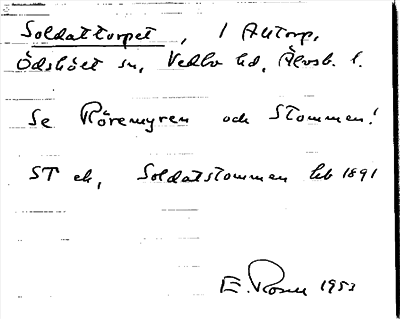 Soldattorpet, 1 Attorp,
Ödskölt sn, Vedbo hd, Älvsb. l.
Se Röremyren och Stommen!
ST ek, Soldatstommen leb 1891
E. Rosen 1953